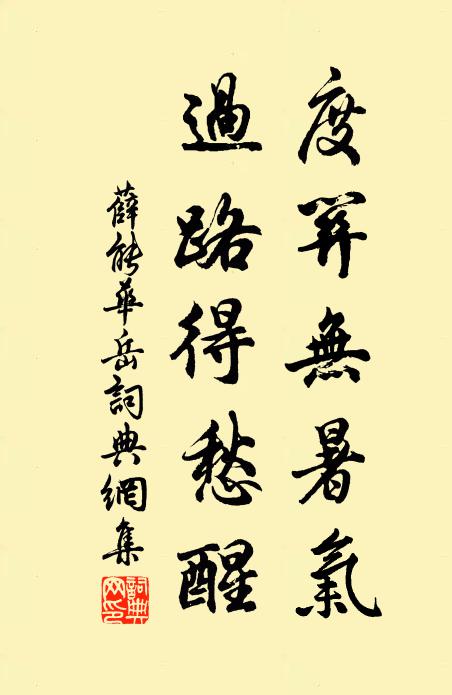 度關無暑氣
過路得愁醒
薛能華岳詞典網集
詞典网印